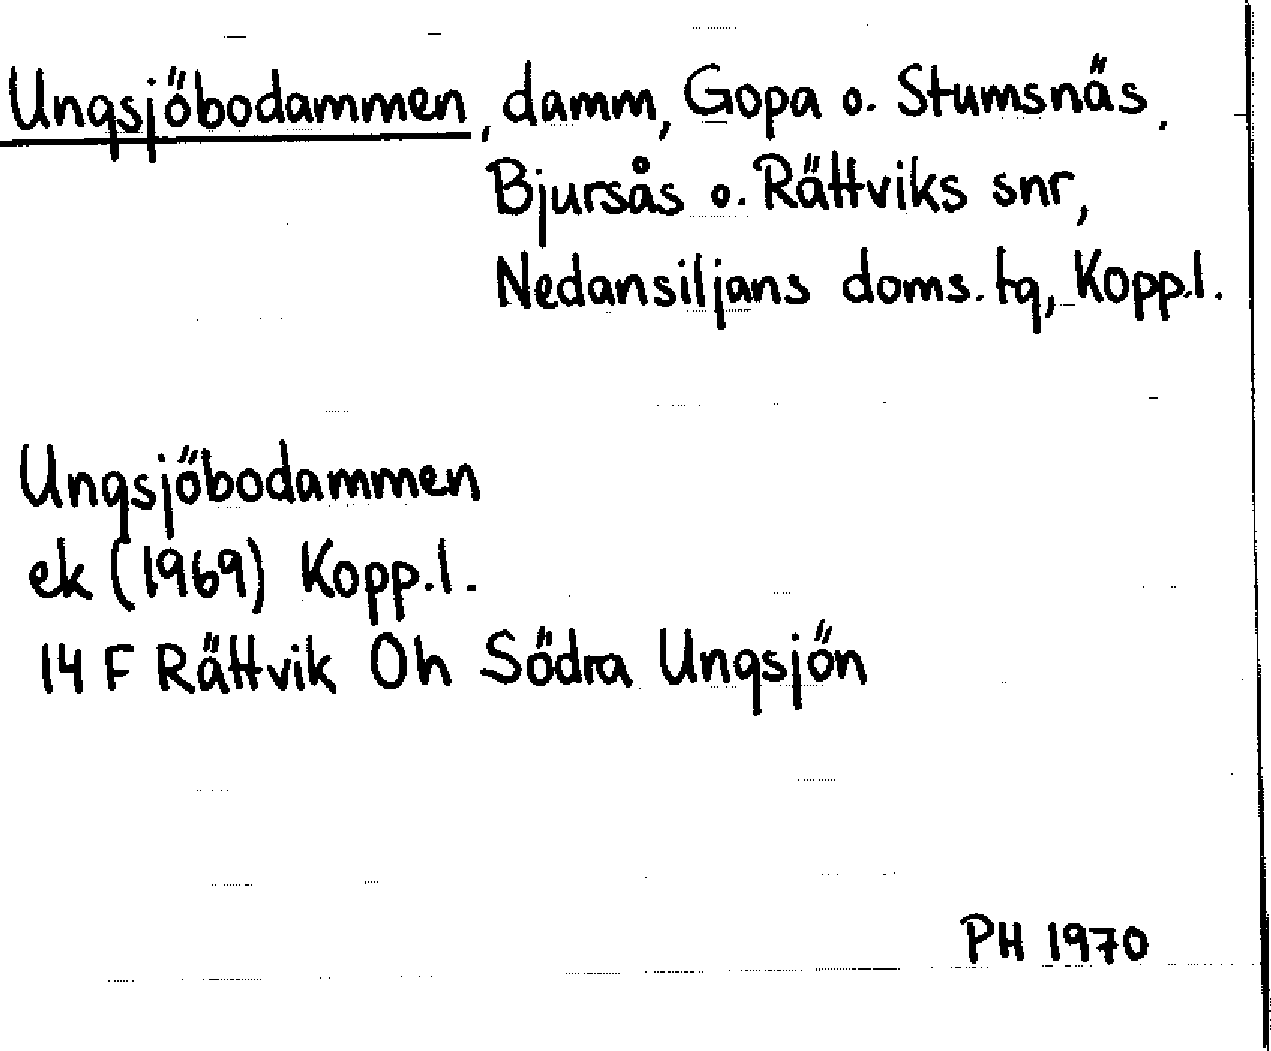 Ungsjöbodammen, damm, Gopa o. Stumsnäs,
Bjursås o. Rättviks snr,
Nedansiljans doms. tg, Kopp.l.
Ungsjöbodammen
ek (1969) Kopp.l.
14 F Rättvik Oh Södra Ungsjön
PH 1970